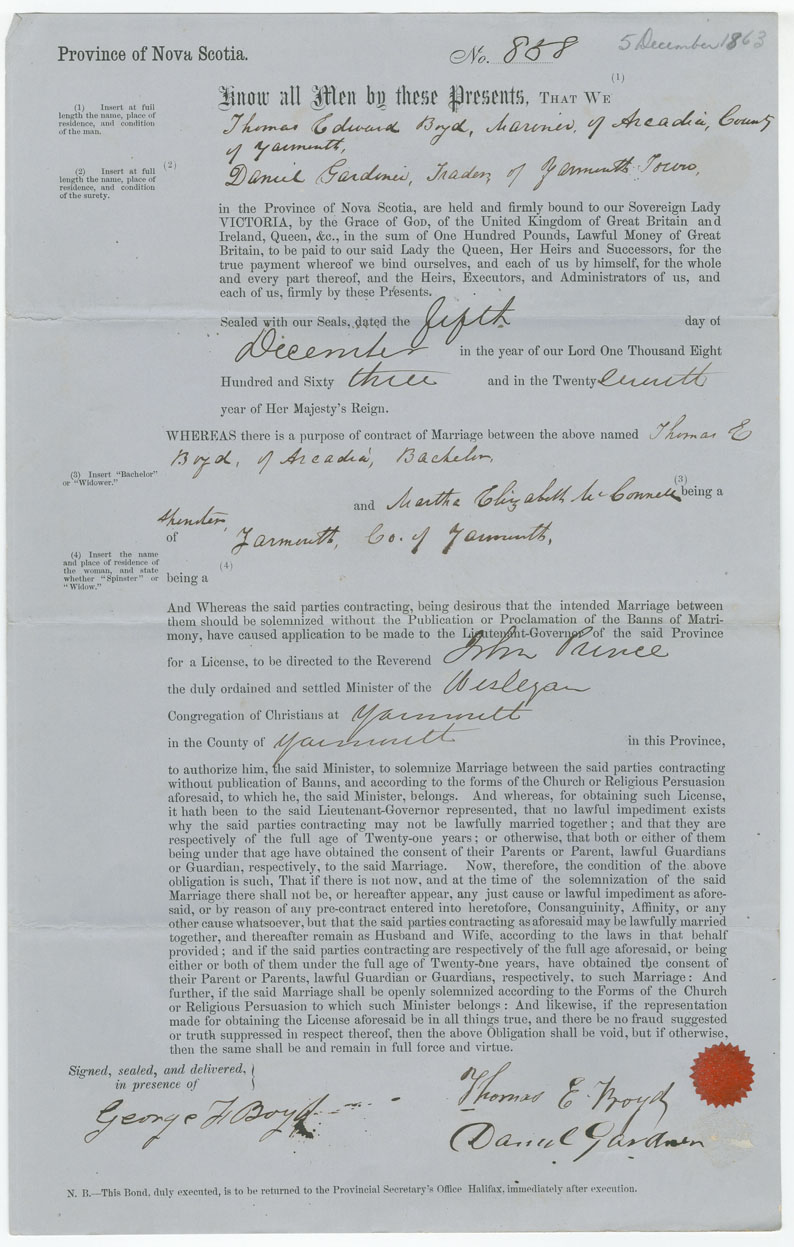 Province of Nova Scotia.
No. 858
5 December 1863
Know all Men by these Presents, THAT WE (1)
(1) Insert at full
length the name, place of
residence, and condition
of the man.
Thomas Edward Boyd, Mariner, of Arcadia, County
of Yarmouth,
(2) Insert at full (2)
length the name, place of
residence, and condition
of the surety.
Daniel Gardiner, Trader, of Yarmouth Town,
in the Province of Nova Scotia, are held and firmly bound to our Sovereign Lady
VICTORIA, by the Grace of GOD, of the United Kingdom of Great Britain and
Ireland, Queen, &c., in the sum of One Hundred Pounds, Lawful Money of Great
Britain, to be paid to our said Lady the Queen, Her Heirs and Successors, for the
true payment whereof we bind ourselves, and each of us by himself, for the whole
and every part thereof, and the Heirs, Executors, and Administrators of us, and
each of us, firmly by these Presents.
Sealed with our Seals, dated the fifth day of
December in the year of our Lord One Thousand Eight
Hundred and Sixty three and in the Twenty seventh
year of Her Majesty's Reign.
WHEREAS there is a purpose of contract of Marriage between the above named Thomas E
Boyd, of Arcadia, Bachelor,
(3) Insert "Bachelor"
or "Widower."
and Martha Elizabeth McConnell (3) being a
spinster,
of Yarmouth, Co. of Yarmouth,
(4) Insert the name
and place of residence of
the woman, and state
whether "Spinster" or
"Widow."
(4)
being a
And Whereas the said parties contracting, being desirous that the intended Marriage between
them should be solemnized without the Publication or Proclamation of the Banns of Matri-
mony, have caused application to be made to the Lieutenant-Governor of the said Province
for a License, to be directed to the Reverend John Prince
the duly ordained and settled Minister of the Wesleyan
Congregation of Christians at Yarmouth
in the County of Yarmouth in this Province,
to authorize him, the said Minister, to solemnize Marriage between the said parties contracting
without publication of Banns, and according to the forms of the Church or Religious Persuasion
aforesaid, to which he, the said Minister, belongs. And whereas, for obtaining such License,
it hath been to the said Lieutenant-Governor represented, that no lawful impediment exists
why the said parties contracting may not be lawfully married together; and that they are
respectively of the full age of Twenty-one years; or otherwise, that both or either of them
being under that age have obtained the consent of their Parents or Parent, lawful Guardians
or Guardian, respectively, to the said Marriage. Now, therefore, the condition of the above
obligation is such, That if there is not now, and at the time of the solemnization of the said
Marriage there shall not be, or hereafter appear, any just cause or lawful impediment as afore-
said, or by reason of any pre-contract entered into heretofore, Consanguinity, Affinity, or any
other cause whatsoever, but that the said parties contracting as aforesaid may be lawfully married
together, and thereafter remain as Husband and Wife, according to the laws in that behalf
provided; and if the said parties contracting are respectively of the full age aforesaid, or being
either or both of them under the full age of Twenty-one years, have obtained the consent of
their Parent or Parents, lawful Guardian or Guardians, respectively, to such Marriage: And
further, if the said Marriage shall be openly solemnized according to the Forms of the Church
or Religious Persuasion to which such Minister belongs: And likewise, if the representation
made for obtaining the License aforesaid be in all things true, and there be no fraud suggested
or truth suppressed in respect thereof, then the above Obligation shall be void, but if otherwise,
then the same shall be and remain in full force and virtue.
Signed, sealed, and delivered,
in presence of
Thomas E. Boyd
George F Boyd
Daniel Gardner
N. B.—This Bond, duly executed, is to be returned to the Provincial Secretary's Office Halifax, immediately after execution.